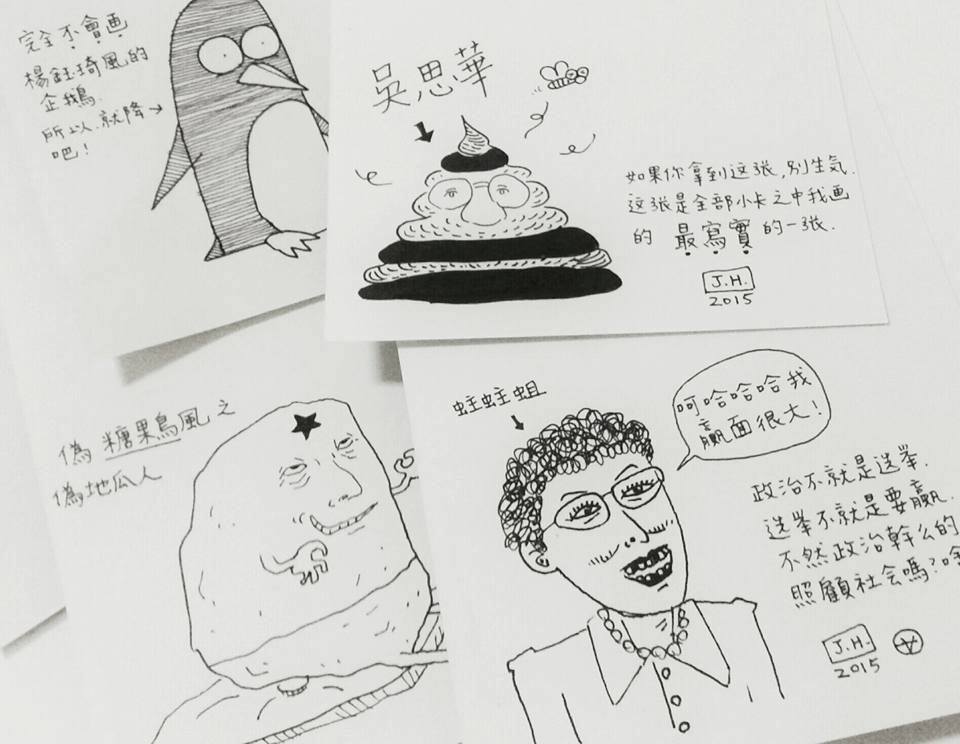 完全不會画
楊鈺琦風的
企鵝.
所以,就降
吧!
吳思華
如果你拿到这张,別生気.
这张是全部小卡之中我画
的 最寫實 的一张.
J.H.
2015
偽糖果鳥風之
偽地瓜人
蛀蛀蛆
呵哈哈哈我
贏面很大!
政治不就是选举.
选举不就是要贏.
不然政治幹么的
照顧社会嗎?
J.H.
2015